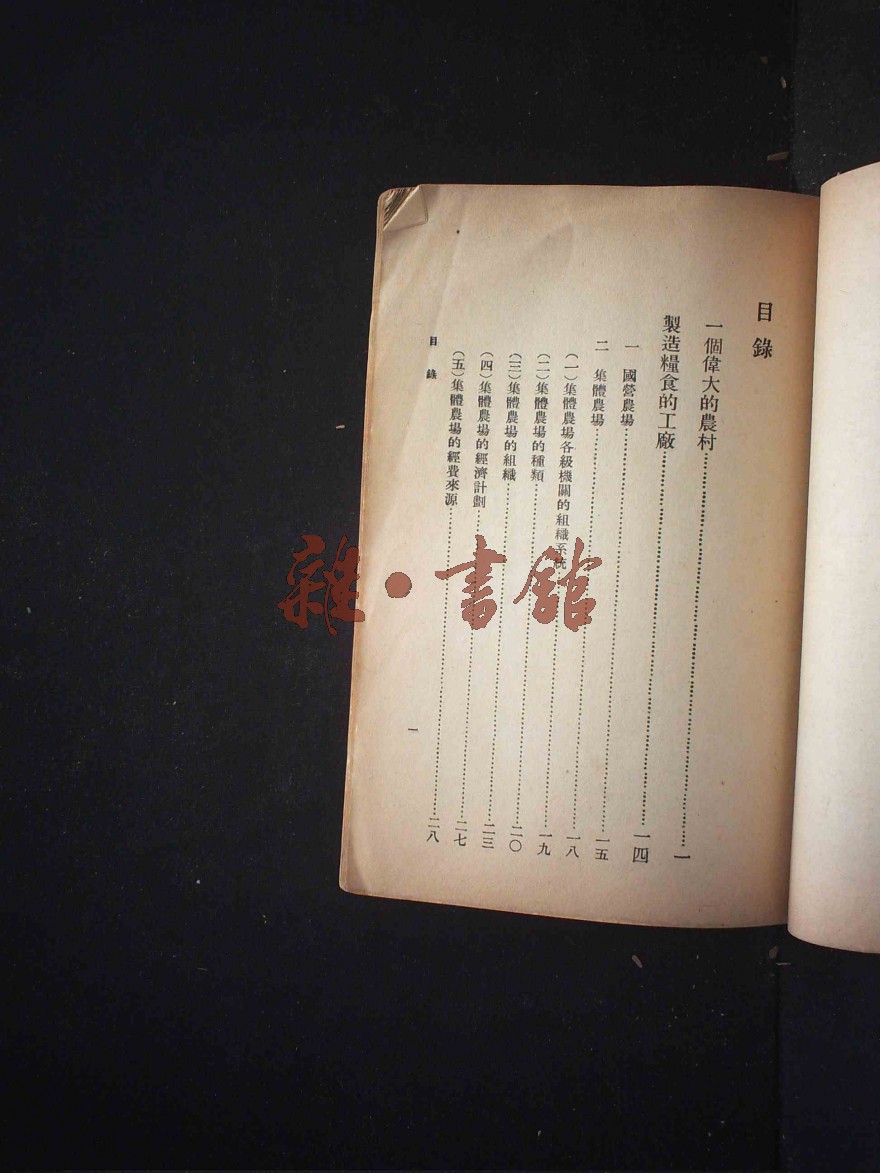 目錄
一個偉大的農村……一
製造糧食的工廠……一四
一 國營農場……一五
二 集體農場……一八
(一)集體農場各級機關的組織系統……一九
(二)集體農場的種類……二〇
(三)集體農場的組織……二三
(四)集體農場的經濟計劃……二七
(五)集體農場的經費來源……二八
目錄 一
雜·書館